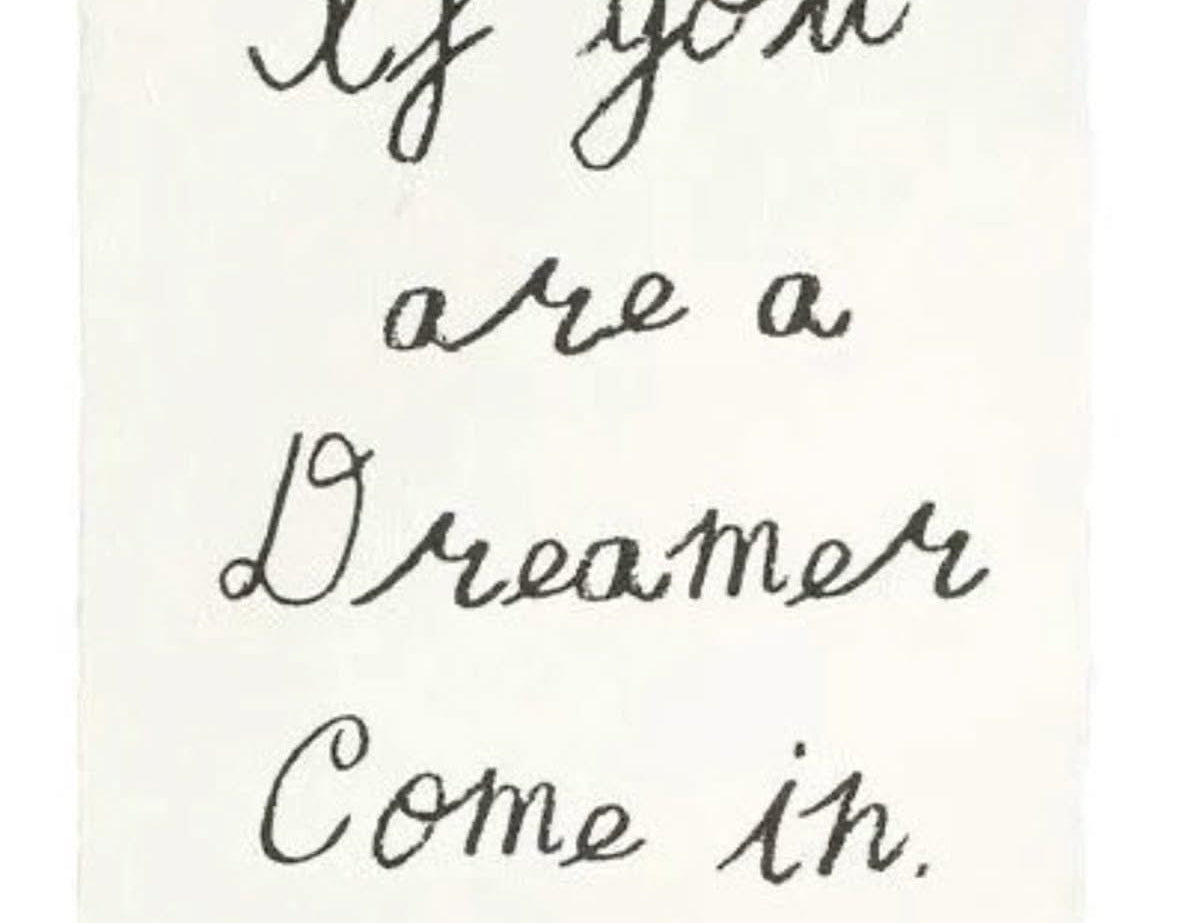 If you
are a
Dreamer
Come in.